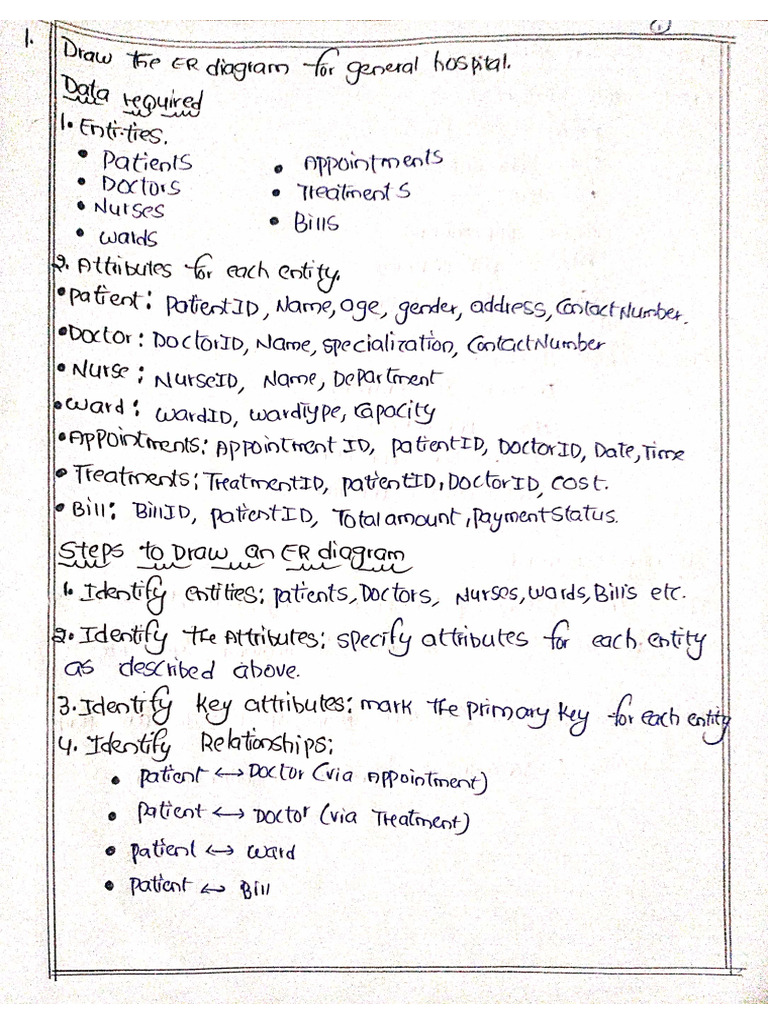 (1)
1.
Draw the ER diagram for general hospital.
Data required
1. Entities.
• Patients • Appointments
• Doctors • Treatments
• Nurses • Bills
• Wards
2. Attributes for each entity.
• Patient: PatientID, Name, age, gender, address, ContactNumber.
• Doctor: DoctorID, Name, specialization, ContactNumber
• Nurse: NurseID, Name, Department
• Ward: WardID, WardType, Capacity
• Appointments: Appointment ID, PatientID, DoctorID, Date, Time
• Treatments: TreatmentID, PatientID, DoctorID, cost.
• Bill: BillID, PatientID, Total amount, Payment Status.
Steps to Draw an ER diagram
1. Identify entities: Patients, Doctors, Nurses, Wards, Bills etc.
2. Identify the Attributes: specify attributes for each entity
as described above.
3. Identify key attributes: mark the primary key for each entity
4. Identify Relationships:
• Patient ↔ Doctor (via Appointment)
• Patient ↔ Doctor (via Treatment)
• Patient ↔ Ward
• Patient ↔ Bill